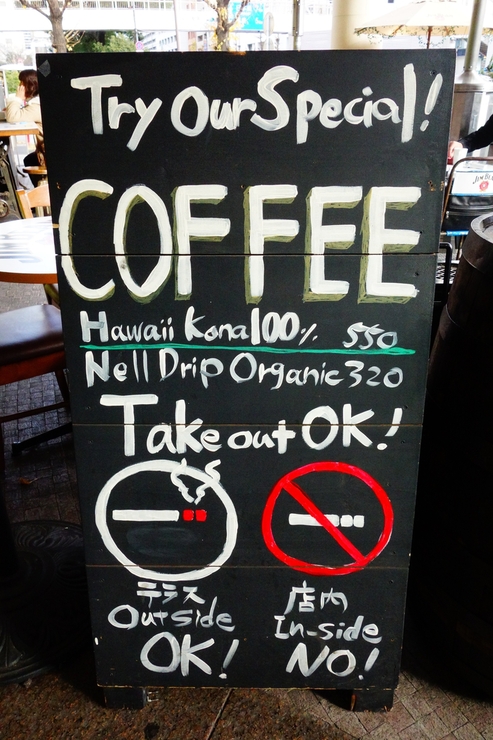 Try Our Special!
COFFEE
Hawaii Kona 100% 550
Nell Drip Organic 320
Take out OK!
テラス 店内
Outside In-side
OK! NO!
JIM BEAM